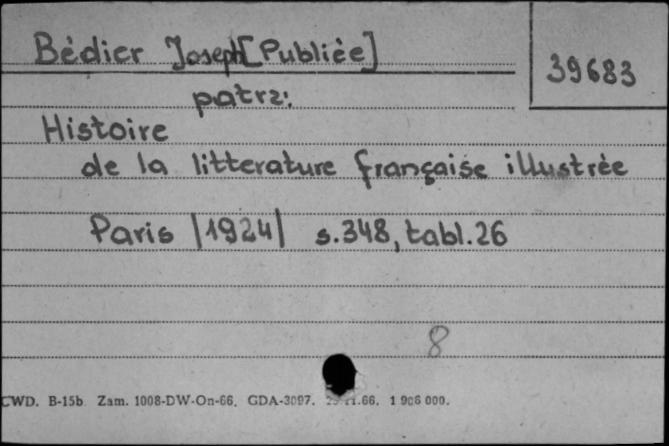 Bédier Joseph [Publiée]
39683
patrz:
Histoire
de la litterature française illustrée
Paris |1924| s.348, tabl.26
8
CWD. B-15b. Zam. 1008-DW-On-66. GDA-3097. 11.66. 1 906 000.